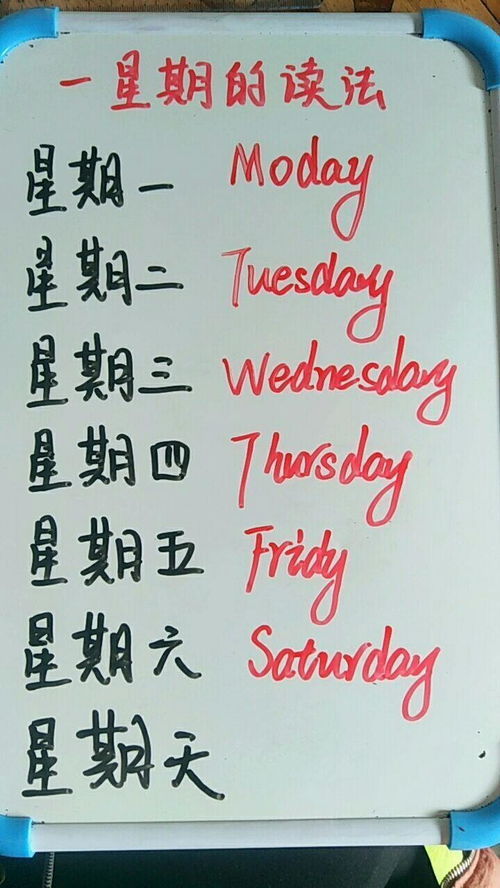 一星期的读法
星期一 Moday
星期二 Tuesday
星期三 Wednesday
星期四 Thursday
星期五 Fridy
星期六 Saturday
星期天